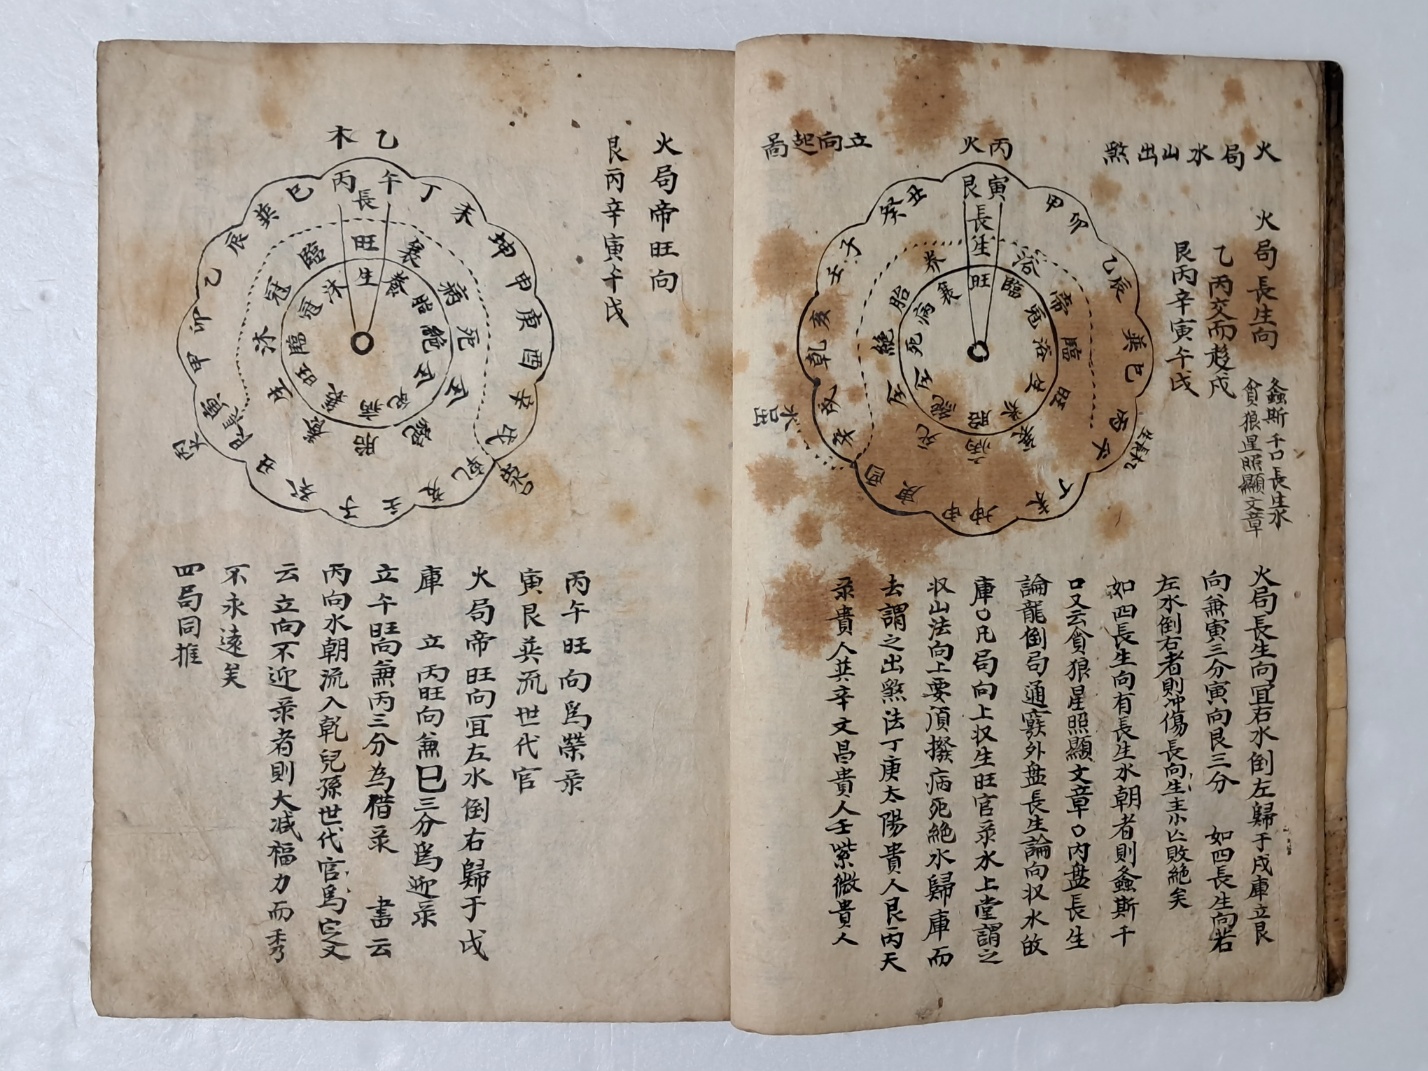 火局水山出煞
丙火
立向起局
火局長生向
乙丙交而趍戍
艮丙辛寅午戌
螽斯千口長生水
貪狼星照顯文章
艮寅
甲卯
乙辰
巽巳
丙午
丁未
坤申
庚酉
辛戌
乾亥
壬子
癸丑
長生
浴
帝
臨
旺
衰
病
死
絕
胎
养
旺
臨
冠
浴
生
养
胎
絕
死
病
衰
水出
火局長生向宜右水倒左歸于戌庫立艮
向兼寅三分寅向艮三分　如四長生向若
左水倒右者則冲傷長向生主小亡敗絕矣
如四長生向有長生水朝者則螽斯千
口又云貪狼星照顯文章〇内盘長生
論龍倒局通竅外盘長生論向収水故
庫〇凡局向上収生旺官彔水上堂謂之
収山法向上要須撥病死絕水歸庫而
去謂之出煞法丁庚太陽貴人艮丙天
彔貴人巽辛文昌貴人壬紫微貴人
火局帝旺向
艮丙辛寅午戌
乙木
丙午
丁未
坤申
庚酉
辛戌
乾亥
壬子
癸丑
艮寅
甲卯
乙辰
巽巳
長生
旺
衰
病
死
絕
胎
养
生
沐
冠
臨
丙午旺向爲榮彔
寅艮巽流世代官
火局帝旺向宜左水倒右歸于戌
庫　立丙旺向兼巳三分爲迎彔
立午旺向兼丙三分为借彔　書云
丙向水朝流入乾兒孫世代官爲定又
云立向不迎彔者則大减福力而秀
不永遠矣
四局同推